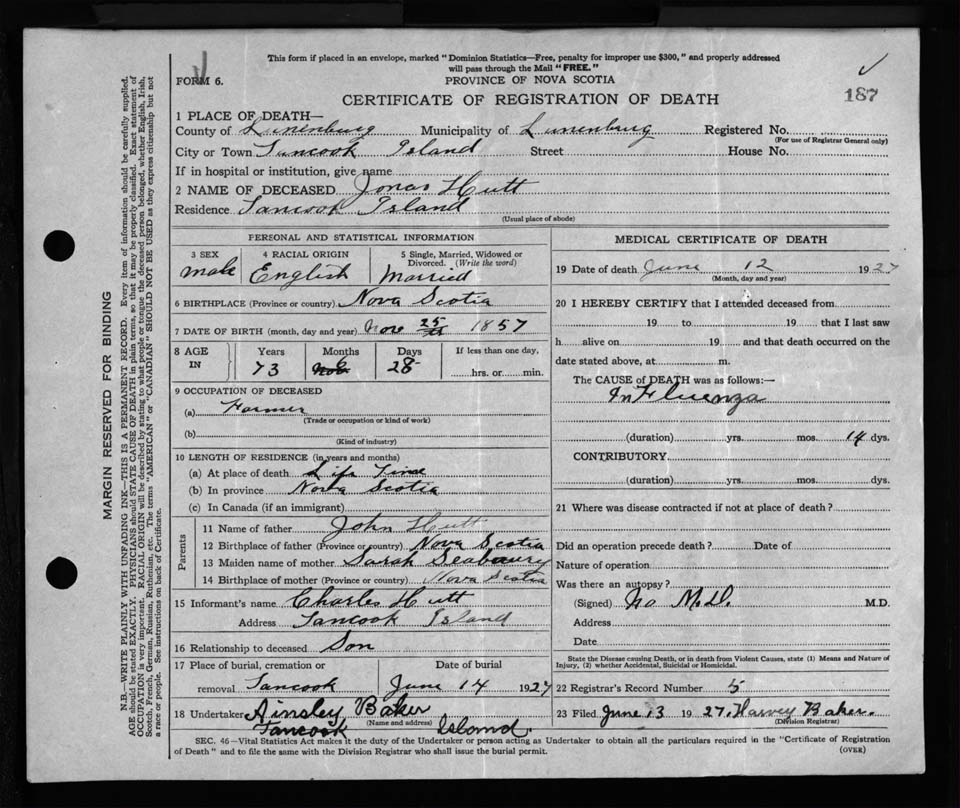 This form if placed in an envelope, marked "Dominion Statistics—Free, penalty for improper use $300," and properly addressed
will pass through the Mail "FREE."
FORM 6.
PROVINCE OF NOVA SCOTIA
187
CERTIFICATE OF REGISTRATION OF DEATH
1 PLACE OF DEATH—
County of Lunenburg Municipality of Lunenburg Registered No.
(For use of Registrar General only)
City or Town Tancook Island Street House No.
If in hospital or institution, give name
2 NAME OF DECEASED Jonas Hutt
Residence Tancook Island
(Usual place of abode)
PERSONAL AND STATISTICAL INFORMATION
3 SEX 4 RACIAL ORIGIN 5 Single, Married, Widowed or Divorced. (Write the word)
male English Married
6 BIRTHPLACE (Province or country) Nova Scotia
7 DATE OF BIRTH (month, day and year) Nov 25 1857
8 AGE IN Years Months Days If less than one day,
73 6 28 hrs. or min.
9 OCCUPATION OF DECEASED
(a) Farmer
(Trade or occupation or kind of work)
(b)
(Kind of industry)
10 LENGTH OF RESIDENCE (in years and months)
(a) At place of death Life Time
(b) In province Nova Scotia
(c) In Canada (if an immigrant)
Parents
11 Name of father John Hutt
12 Birthplace of father (Province or country) Nova Scotia
13 Maiden name of mother Sarah
14 Birthplace of mother (Province or country) Nova Scotia
15 Informant's name Charles Hutt
Address Tancook Island
16 Relationship to deceased Son
17 Place of burial, cremation or Date of burial
removal Tancook June 14 1927
18 Undertaker Ainsley Baker
(Name and address)
Tancook Island.
MEDICAL CERTIFICATE OF DEATH
19 Date of death June 12 1927
(Month, day and year)
20 I HEREBY CERTIFY that I attended deceased from
19 to 19 that I last saw
h alive on 19 and that death occurred on the
date stated above, at m.
The CAUSE of DEATH was as follows:—
Influenza
(duration) yrs. mos. 14 dys.
CONTRIBUTORY
(duration) yrs. mos. dys.
21 Where was disease contracted if not at place of death?
Did an operation precede death? Date of
Nature of operation
Was there an autopsy?
(Signed) No M.D. M.D.
Address
Date
State the Disease causing Death, or in death from Violent Causes, state (1) Means and Nature of
Injury, (2) whether Accidental, Suicidal or Homicidal.
22 Registrar's Record Number 5
23 Filed June 13 1927. Harvey Baker.
(Division Registrar)
SEC. 46—Vital Statistics Act makes it the duty of the Undertaker or person acting as Undertaker to obtain all the particulars required in the "Certificate of Registration
of Death" and to file the same with the Division Registrar who shall issue the burial permit.
(OVER)
MARGIN RESERVED FOR BINDING
N.B.—WRITE PLAINLY WITH UNFADING INK—THIS IS A PERMANENT RECORD. Every item of information should be carefully supplied.
AGE should be stated EXACTLY. PHYSICIANS should STATE CAUSE OF DEATH in plain terms, so that it may be properly classified. Exact statement of
OCCUPATION is very important. RACIAL ORIGIN will be described by stating to what people or tongue the deceased person belonged, whether English, Irish,
Scotch, French, German, Russian, Ruthenian, etc. The terms "AMERICAN" or "CANADIAN" SHOULD NOT BE USED as they express citizenship but not
a race or people. See instructions on back of Certificate.